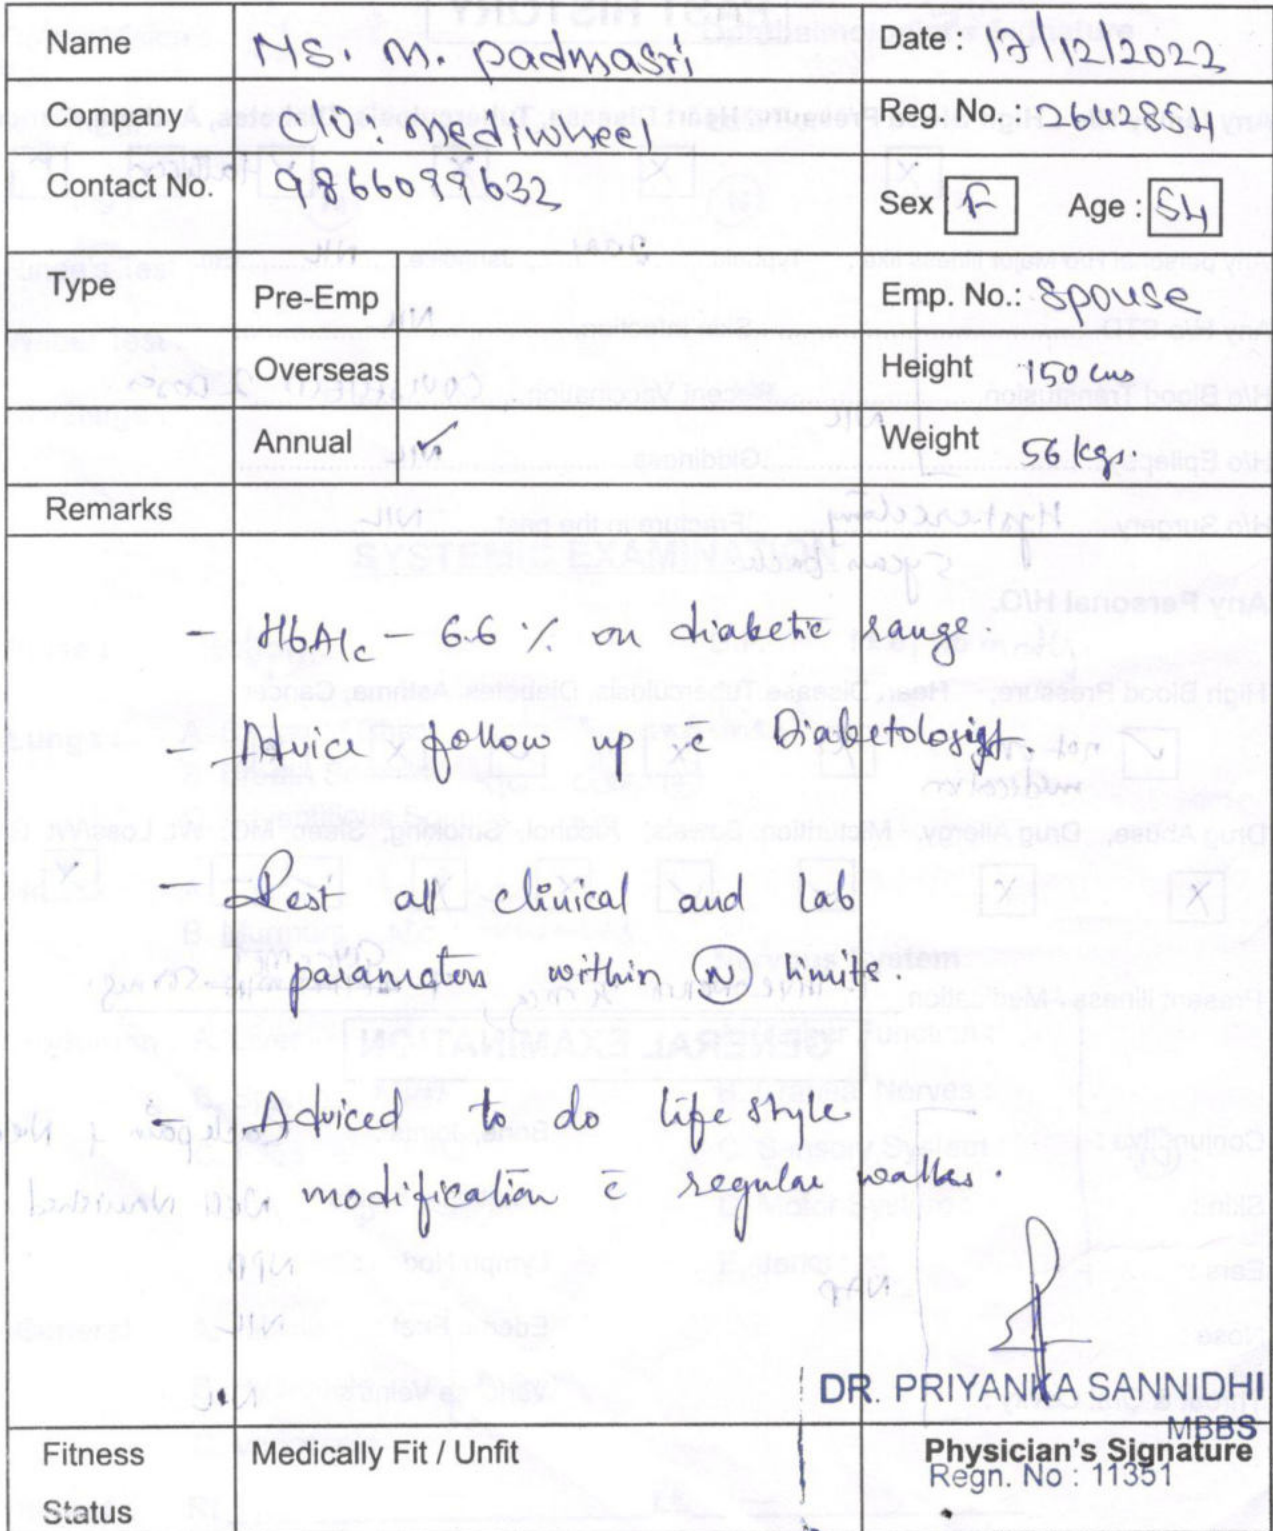 Name Ms. M. padmasri Date : 17/12/2022
Company C/o: mediwheel Reg. No. :
Contact No. 9866099632 Sex F Age : 54
Type Pre-Emp Emp. No.: spouse
Overseas Height 150 cms
Annual ✓ Weight 56 kgs.
Remarks
- HbA1c - 6.6 % on diabetic range.
- Advice follow up c̄ Diabetologist.
- Rest all clinical and lab
parameters within (N) limits.
- Adviced to do life style
modification c̄ regular walks.
DR. PRIYANKA SANNIDHI
MBBS
Physician's Signature
Regn. No : 11351
Fitness Medically Fit / Unfit
Status